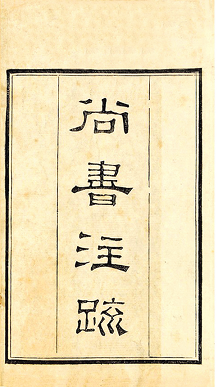 尚書注疏